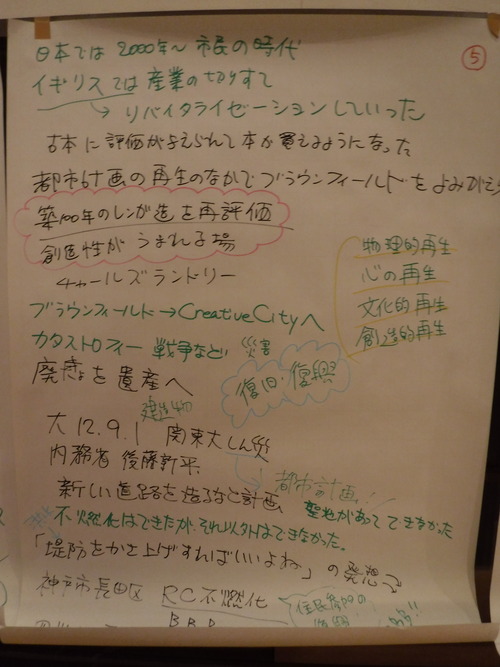 ⑤
日本では 2000年〜 市民の時代
イギリスでは産業の切りすて
→ リバイタライゼーションしていった
古本に評価が与えられて本が買えるようになった
都市計画の再生のなかでブラウンフィールドをよみがえら
築100年のレンガ造を再評価
創造性がうまれる場
チャールズランドリー
物理的再生
心の再生
文化的再生
創造的再生
ブラウンフィールド→CreativeCityへ
カタストロフィー 戦争など 災害
復旧・復興
廃墟を遺産へ
建造物
大12.9.1 関東大しん災
内務省 後藤新平
都市計画
新しい道路を造るなど計画
があってできなかった
不燃化はできたが、それ以外はできなかった。
「堤防をかさ上げすればいいよね」の発想
神戸市長田区 RC不燃化
住民参加の